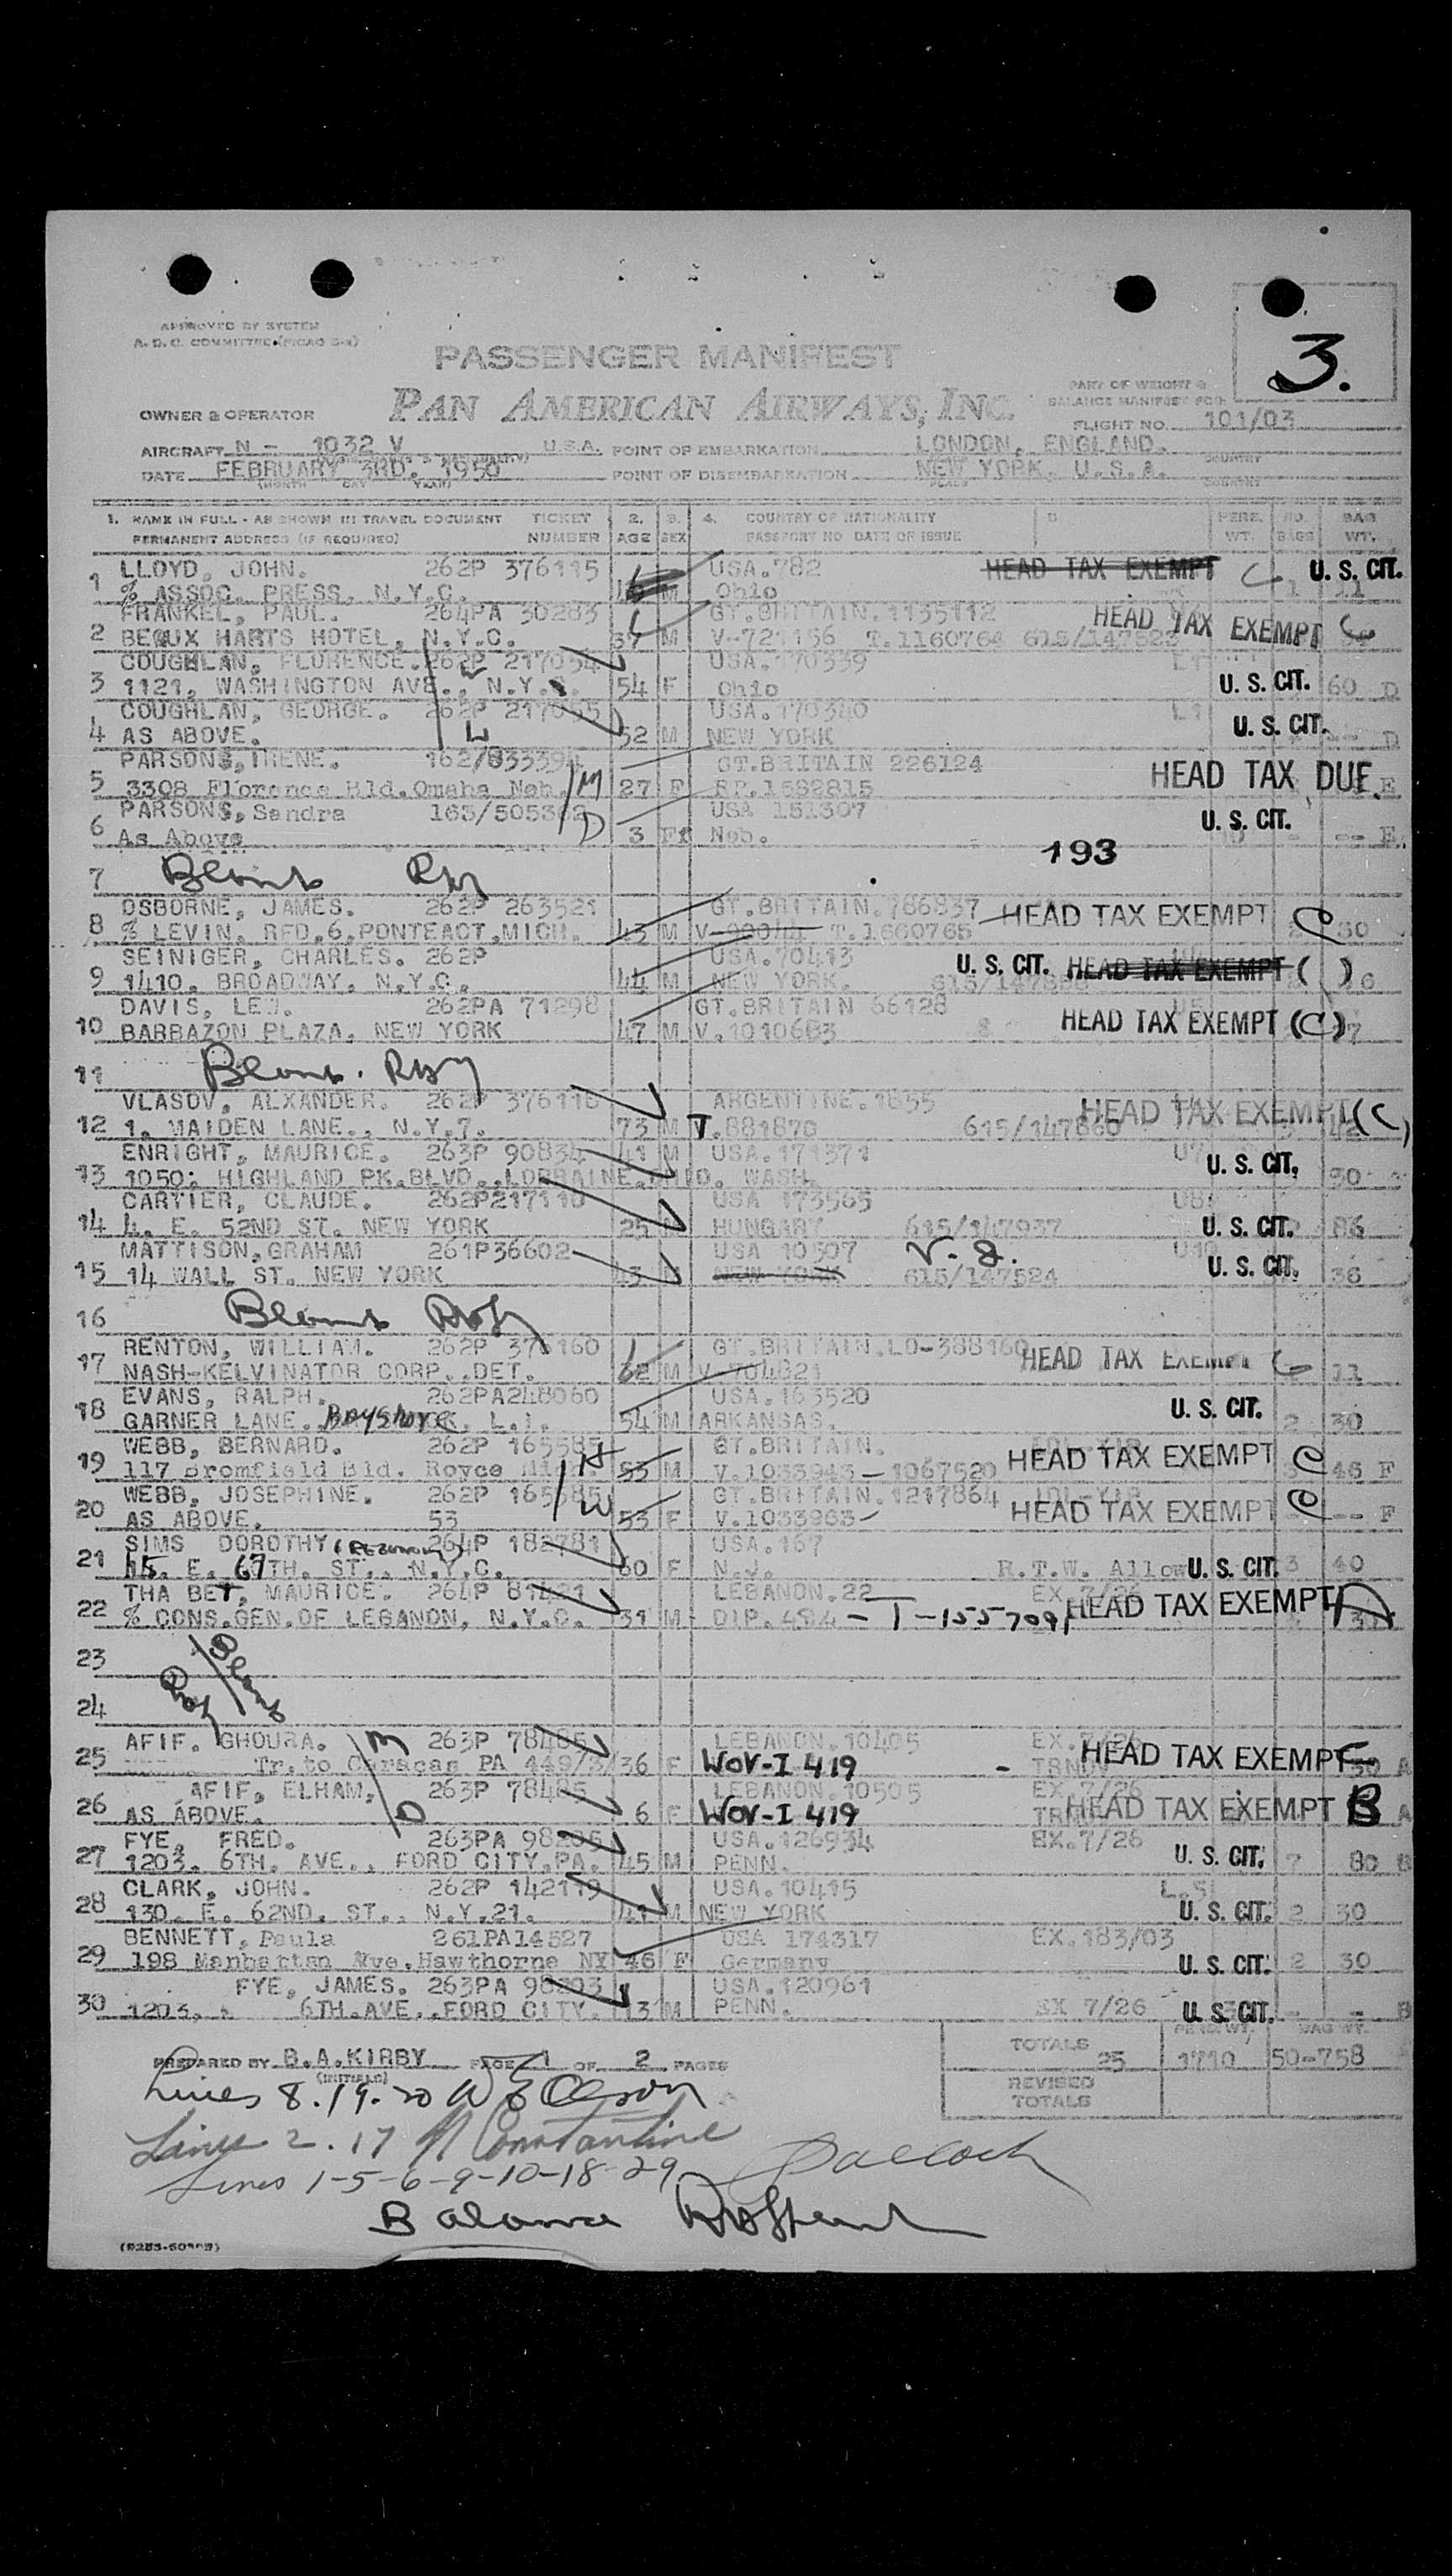 3.
APPROVED BY SYSTEM
A. D. C. COMMITTEE
PASSENGER MANIFEST
PAN AMERICAN AIRWAYS, INC.
PART OF WEIGHT &
BALANCE MANIFEST FOR
OWNER & OPERATOR
FLIGHT NO. 101/03
AIRCRAFT N - 1032 V U.S.A. POINT OF EMBARKATION LONDON, ENGLAND.
DATE FEBRUARY 3RD. 1950 POINT OF DISEMBARKATION NEW YORK, U.S.A.
(MONTH DAY YEAR) PLACE COUNTRY
1. NAME IN FULL - AS SHOWN IN TRAVEL DOCUMENT TICKET 2. 3. 4. COUNTRY OF NATIONALITY 5. PERS. NO. BAG
PERMANENT ADDRESS (IF REQUIRED) NUMBER AGE SEX PASSPORT NO DATE OF ISSUE WT. BAGS WT.
LLOYD, JOHN. 262P 376115 USA.782 HEAD TAX EXEMPT C U. S. CIT.
1 % ASSOC. PRESS, N.Y.C. M Ohio 1 11
FRANKEL, PAUL. 264PA 30283 GT.BRITAIN.1135112 HEAD TAX EXEMPT C
2 BEAUX HARTS HOTEL, N.Y.C. M V-721156 T.1160764 615/147523
COUGHLAN, FLORENCE. 262P 217054 USA.170339
3 1121, WASHINGTON AVE., N.Y.C. 54 F Ohio U. S. CIT. 60 D
COUGHLAN, GEORGE. 262P 217055 USA.170340
4 AS ABOVE. 52 M NEW YORK U. S. CIT. -- D
PARSONS, IRENE. 162/033394 GT.BRITAIN 226124
5 3308 Florence Bld. Omaha Neb. M 27 F RP.1582815 HEAD TAX DUE. E
PARSONS, Sandra 163/505362 USA 151307
6 As Above D 3 F Neb. U. S. CIT. -- E
193
7 Blank
OSBORNE, JAMES. 262P 263521 GT.BRITAIN.786837 HEAD TAX EXEMPT C
8 % LEVIN, RFD.6,PONTEACT,MICH. 43 M T.1660765 30
SEINIGER, CHARLES. 262P USA.70413
9 1410, BROADWAY, N.Y.C. 44 M NEW YORK. U. S. CIT. HEAD TAX EXEMPT ( )
DAVIS, LEW. 262PA 71298 GT.BRITAIN 66128
10 BARBAZON PLAZA, NEW YORK 47 M V.1010683 HEAD TAX EXEMPT (C)
11 Blank.
VLASOV, ALXANDER. 262P 376116 ARGENTINE.1855
12 1, MAIDEN LANE., N.Y.7. 73 M T.881870 615/147860 HEAD TAX EXEMPT (C)
ENRIGHT, MAURICE. 263P 90834 41 M USA.171371
13 1050; HIGHLAND PK.BLVD.,LORRAINE.OHIO. WASH. U. S. CIT. 30
CARTIER, CLAUDE. 262P217110 USA 173565
14 4, E. 52ND ST. NEW YORK 25 HUNGARY 615/147937 U. S. CIT. 86
MATTISON,GRAHAM 261P36602 USA 10507
15 14 WALL ST. NEW YORK 43 NEW YORK 615/147524 U. S. CIT. 36
16 Blank
RENTON, WILLIAM. 262P 376160 GT.BRITAIN.LO-388160
17 NASH-KELVINATOR CORP.,DET. 62 M V.704821 HEAD TAX EXEMPT C 11
EVANS, RALPH. 262PA248060 USA.163520
18 GARNER LANE, Bayshore L.I. 54 M ARKANSAS. U. S. CIT. 2 30
WEBB, BERNARD. 262P 165585 H GT.BRITAIN.
19 117 Bromfield Bld. Royce Mich. 53 M V.1033943 - 1067520 HEAD TAX EXEMPT C 46 F
WEBB, JOSEPHINE. 262P 165585 W GT.BRITAIN.1217864
20 AS ABOVE. 53 53 F V.1033963 HEAD TAX EXEMPT C -- F
SIMS DOROTHY 264P 182781 USA.167
21 15. E. 67TH. ST., N.Y.C. 60 F N.J. R.T.W. Allow U. S. CIT. 3 40
THA BET, MAURICE. 264P 81421 LEBANON.22 EX.7/26
22 % CONS.GEN.OF LEBANON, N.Y.C. 31 M DIP.484 - T-1557091 HEAD TAX EXEMPT
23 Blank
24
AFIF. GHOURA. M 263P 78485 LEBANON.10405 EX.7/26
25 Tr.to Caracas PA 449/3/ 36 F WOV-I 419 HEAD TAX EXEMPT C A
AFIF, ELHAM. 263P 78485 LEBANON.10505 EX.7/26
26 AS ABOVE. D 6 F WOV-I 419 HEAD TAX EXEMPT B A
FYE, FRED. 263PA 98205 USA.126934 EX.7/26
27 1203. 6TH. AVE., FORD CITY.PA. 45 M PENN. U. S. CIT. 7 80 B
CLARK, JOHN. 262P 142119 USA.10415
28 130. E. 62ND. ST., N.Y.21. 41 M NEW YORK U. S. CIT. 2 30
BENNETT, Paula 261PA14527 USA 174317 EX.183/03
29 198 Manhattan Ave.Hawthorne NY 46 F Germany U. S. CIT. 2 30
FYE, JAMES. 263PA 98203 USA.120961
30 1203, 6TH.AVE.,FORD CITY. 13 M PENN. EX 7/26 U. S. CIT. - - B
PREPARED BY B.A.KIRBY PAGE 1 OF 2 PAGES
(INITIALS)
TOTALS 25 1710 50-758
REVISED
TOTALS
Lines 8.19.20 W E Olson
Lines 2.17 Constantine
Lines 1-5-6-9-10-18-29
Balance